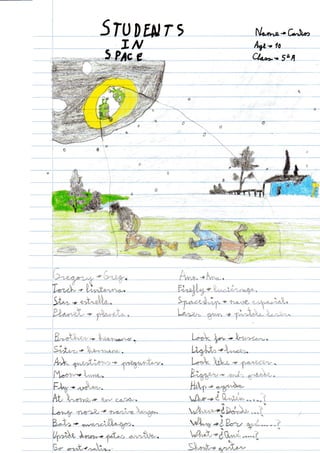 STUDENTS
IN
SPACE
Name → Carlos
Age → 10
Class → 5ºA
Gregory → Greg.
Ana → Ana.
Torch → linterna.
Firefly → luciérnaga.
Star → estrella.
Spaceship → nave espacial.
Planet → planeta.
Laser gun → pistola
Brother → hermano.
Look for → buscar.
Sister → hermana.
Lights → luces.
Ask questions → preguntar.
Look like → parecer.
Moon → luna.
Bigger → más grande.
Fly → volar.
Help → ayuda.
At home → en casa.
Who → ¿Quién.....?
Long nose → nariz larga.
Where → ¿Dónde....?
Bats → murciélagos.
Why → ¿Por qué.....?
Upside down → patas arriba.
What → ¿Qué.....?
Go out → salir.
Shout → gritar